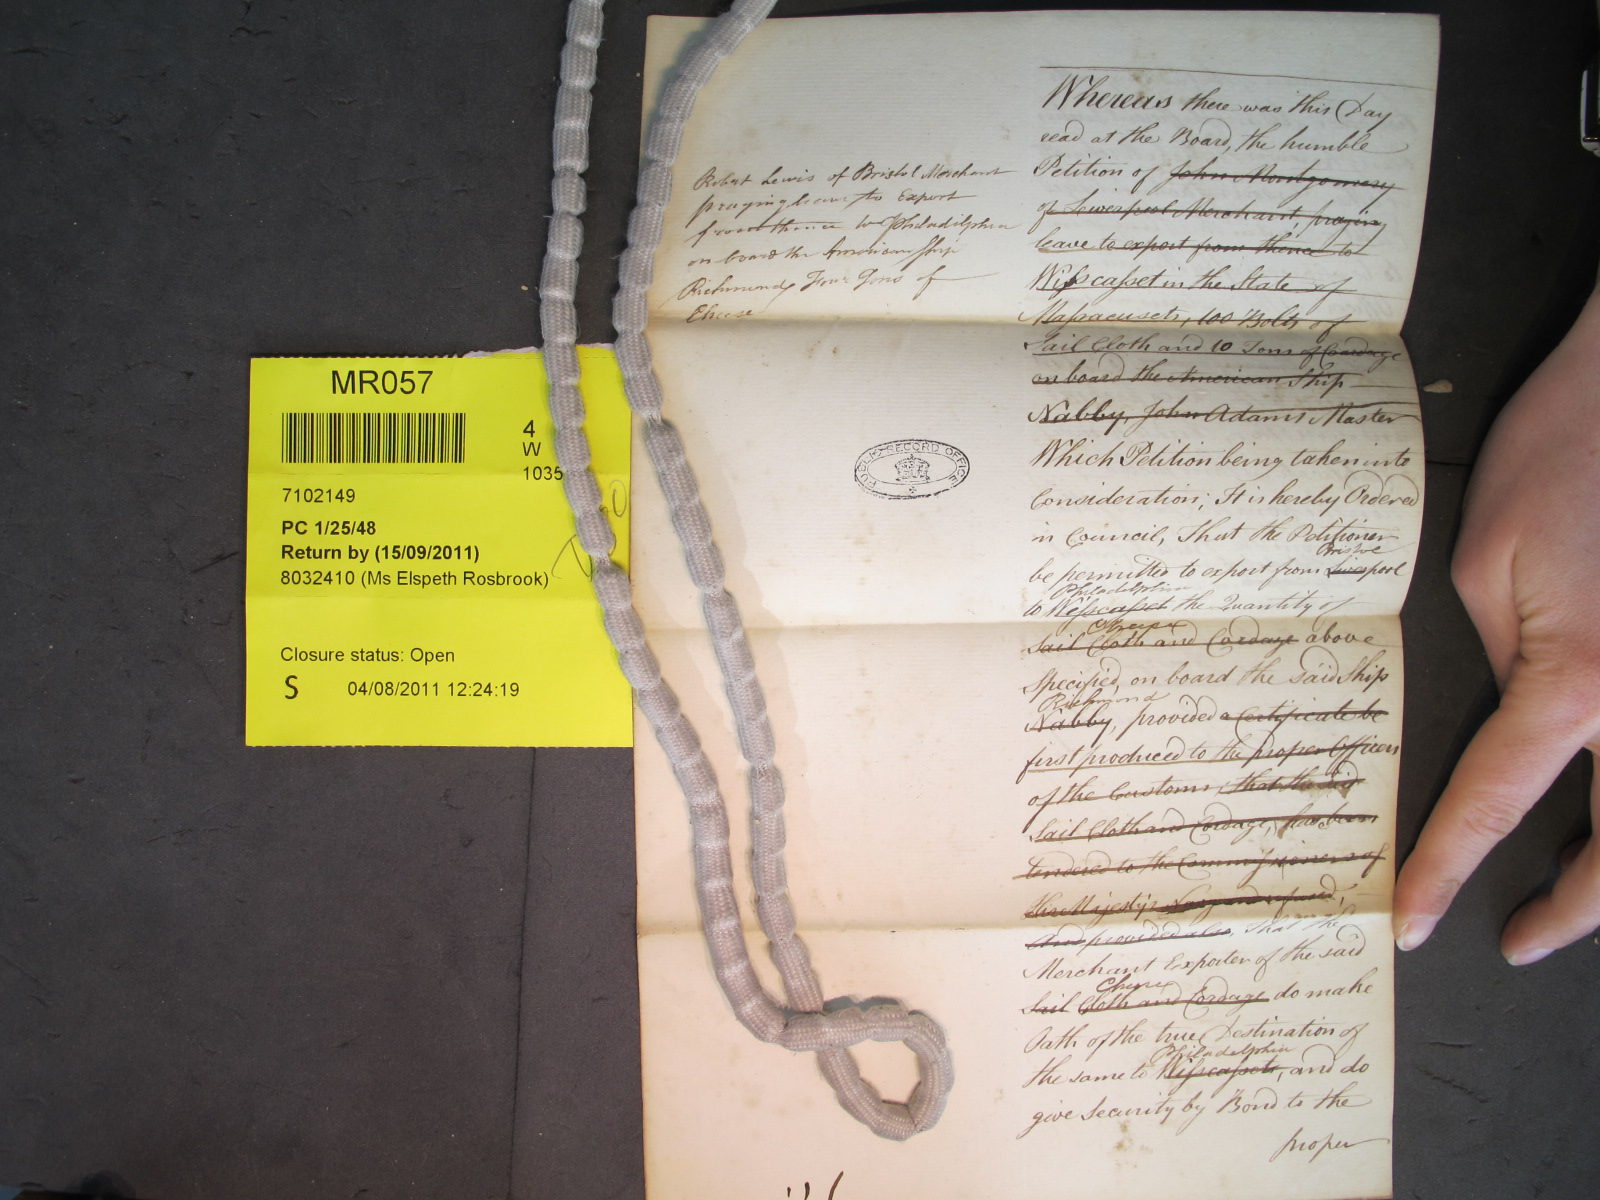 MR057
4
W
1035
7102149
PC 1/25/48
Return by (15/09/2011)
8032410 (Ms Elspeth Rosbrook)
Closure status: Open
S 04/08/2011 12:24:19
Robert Lewis of Bristol Merchant
praying leave to Export
from thence to Philadelphia
on board the American Ship
Richmond, Four Tons of
Cheese
PUBLIC RECORD OFFICE
Whereas there was this Day
read at the Board, the humble
Petition of John Montgomery
of Liverpool Merchant, praying
leave to export from thence to
Wisscasset in the State of
Massacusets, 100 Bolts of
Sail Cloth and 10 Tons of Cordage
on board the American Ship
Nabby, John Adams Master
Which Petition being taken into
Consideration; It is hereby Ordered
in Council, That the Petitioner
Bristol
be permitted to export from Liverpool
Philadelphia
to Wisscasset the Quantity of
Cheese
Sail Cloth and Cordage above
Specified, on board the said Ship
Richmond
Nabby, provided a Certificate be
first produced to the proper Officers
of the Customs, that the said
Sail Cloth and Cordage, has been
tendered to the Commissioners of
His Majesty's Navy and refused,
And provided also, That the
Merchant Exporter of the said
Cheese
Sail Cloth and Cordage do make
Oath of the true Destination of
Philadelphia
the same to Wisscasset, and do
give Security by Bond to the
proper